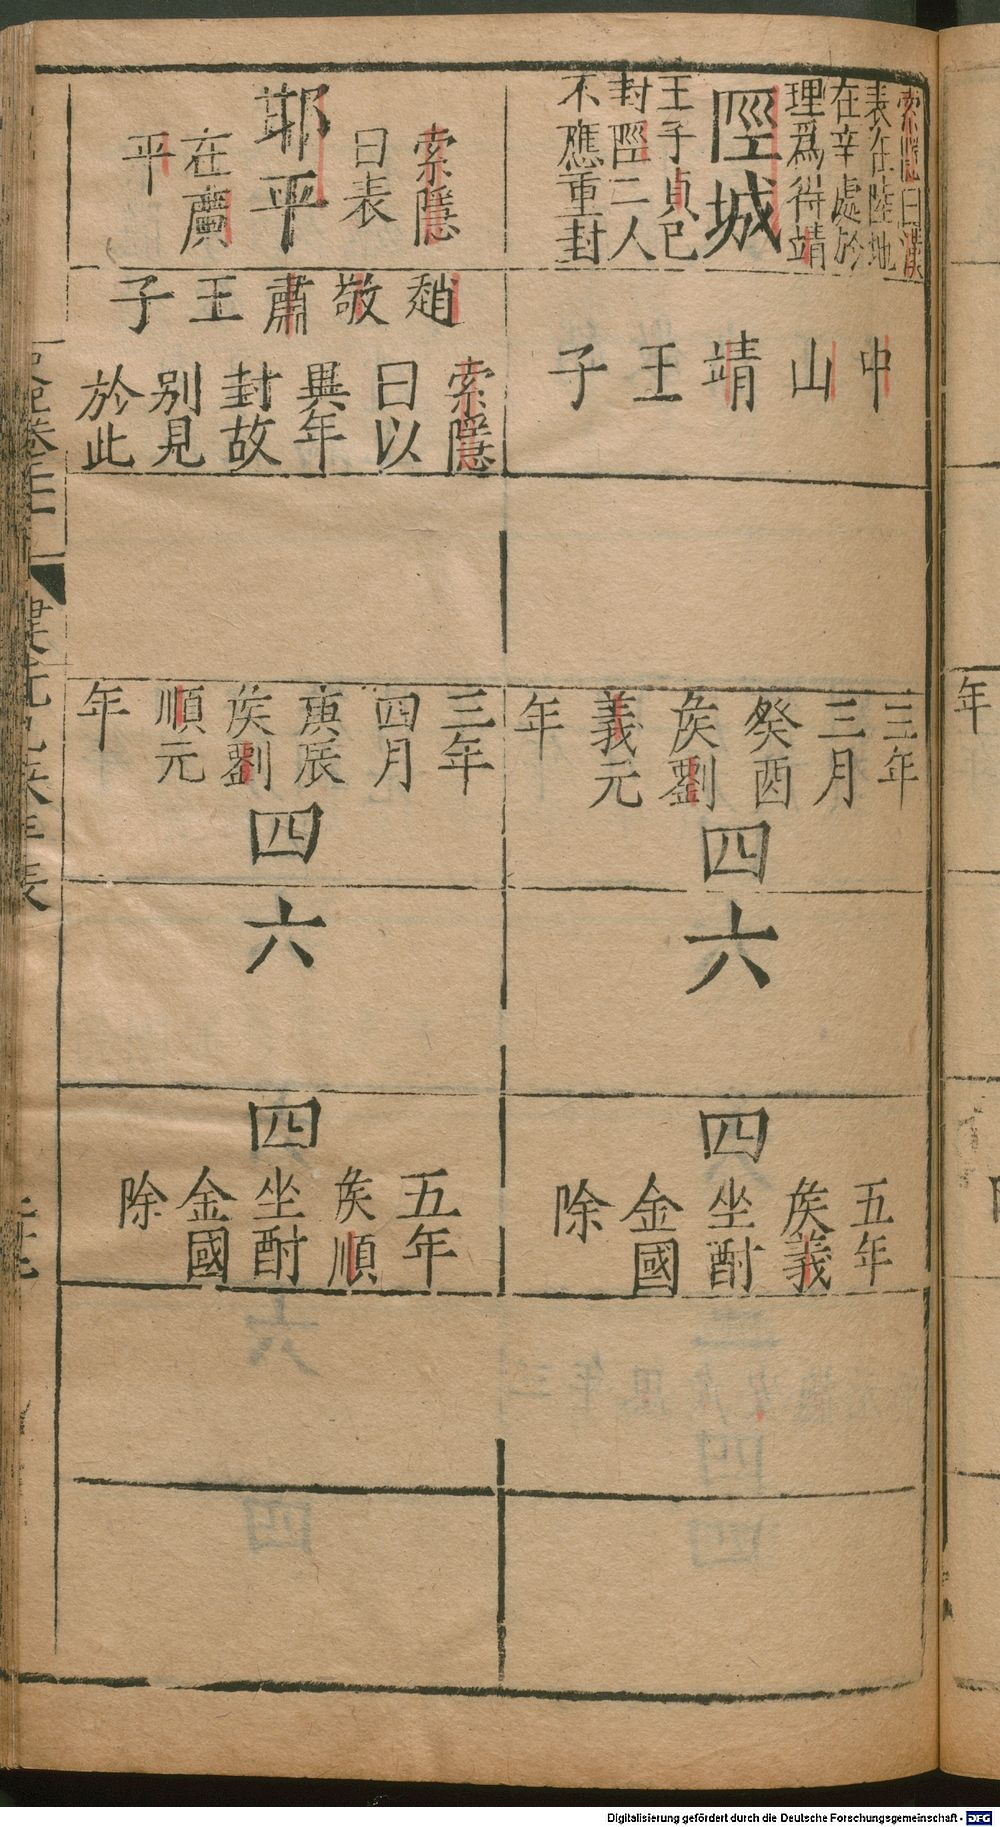 索隱曰漢
表在陸地
在辛處於
理爲得靖
陘城
王子貞已
封陘二人
不應重封
中山靖王子
三年
三月
癸酉
矦劉
義元
年
四
六
四
五年
矦義
坐酎
金國
除
索隱
曰表
邯平
在廣
平
趙敬肅王子
索隱
曰以
異年
封故
別見
於此
三年
四月
庚辰
矦劉
順元
年
四
六
四
五年
矦順
坐酎
金國
除
年
Digitalisierung gefördert durch die Deutsche Forschungsgemeinschaft - DFG